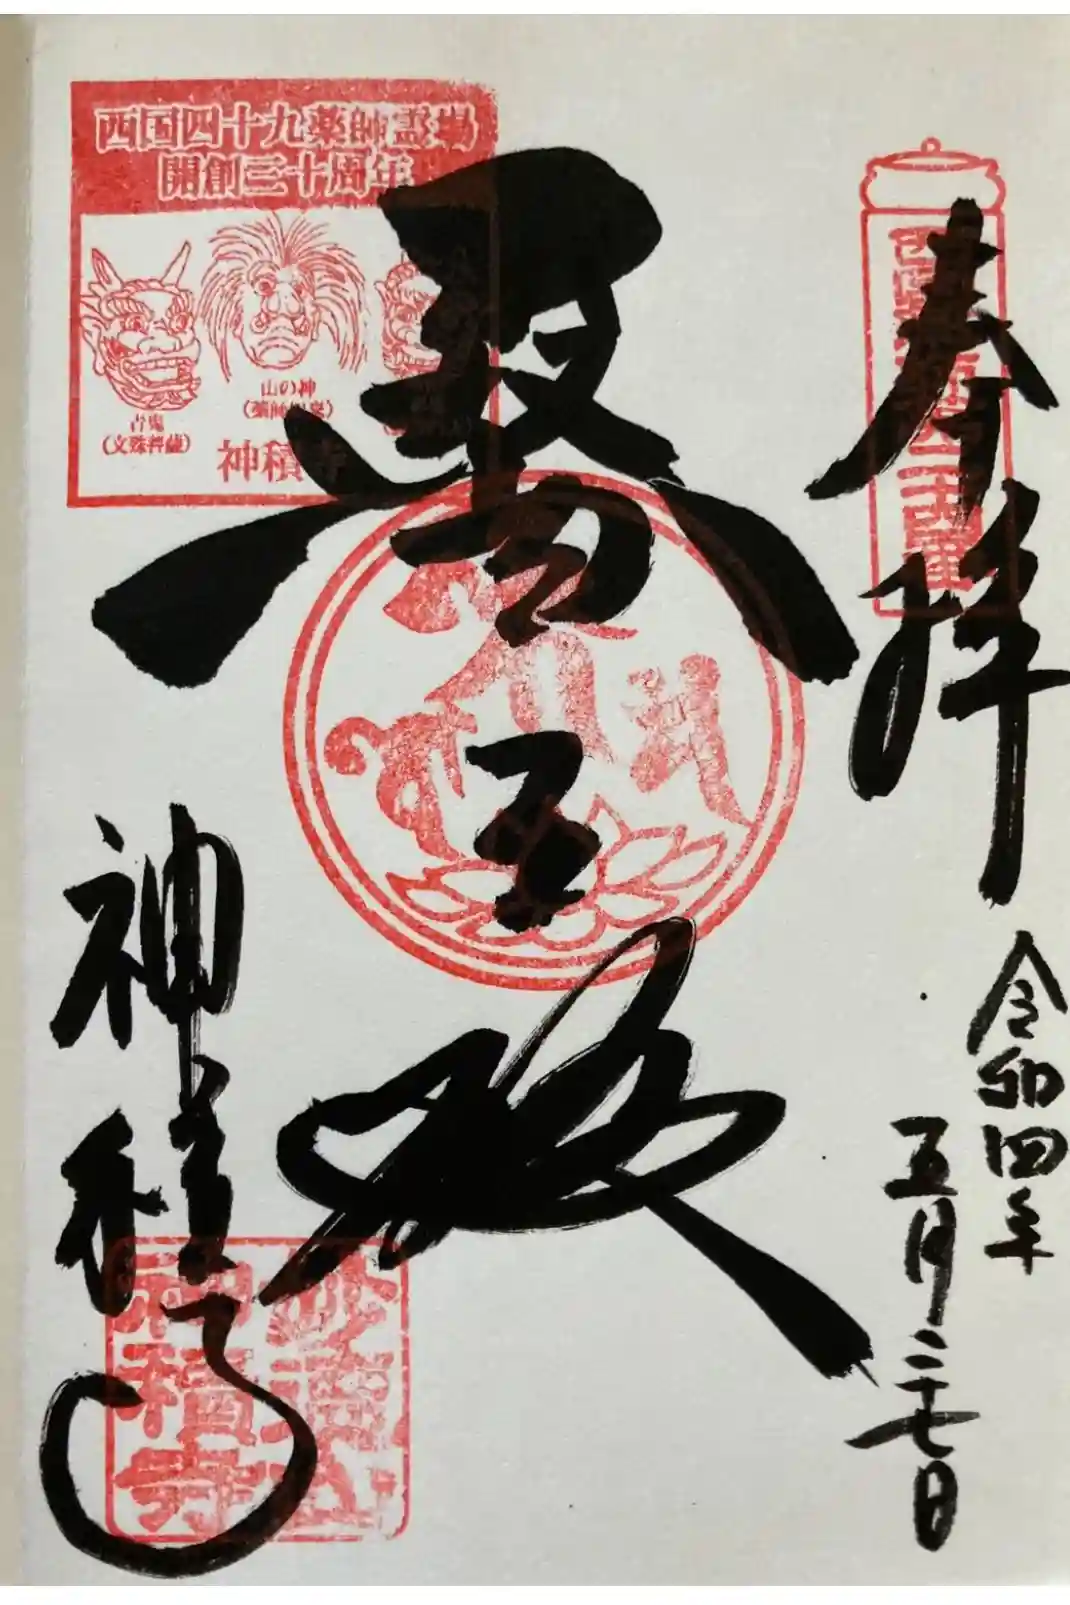 奉拝
令和四年
五月二十七日
西国四十九薬師霊場
開創三十周年
山の神
青鬼
(文殊菩薩)
神積寺
醫王殿
神積寺
神積寺